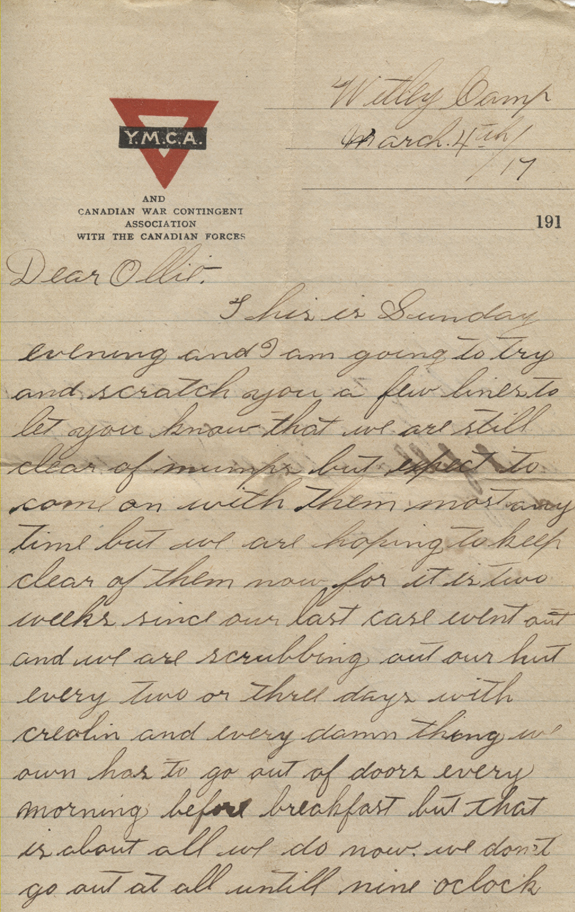 Witley Camp
March. 4th/
/17
Y.M.C.A.
AND
CANADIAN WAR CONTINGENT
ASSOCIATION
WITH THE CANADIAN FORCES
191
Dear Ollie.
This is Sunday
evening and I am going to try
and scratch you a few lines to
let you know that we are still
clear of mumps but expect to
come on with them most any
time but we are hoping to keep
clear of them now for it is two
weeks since our last case went out
and we are scrubbing out our hut
every two or three days with
creolin and every damn thing we
own has to go out of doors every
morning before breakfast but that
is about all we do now. we don't
go out at all untill nine oclock